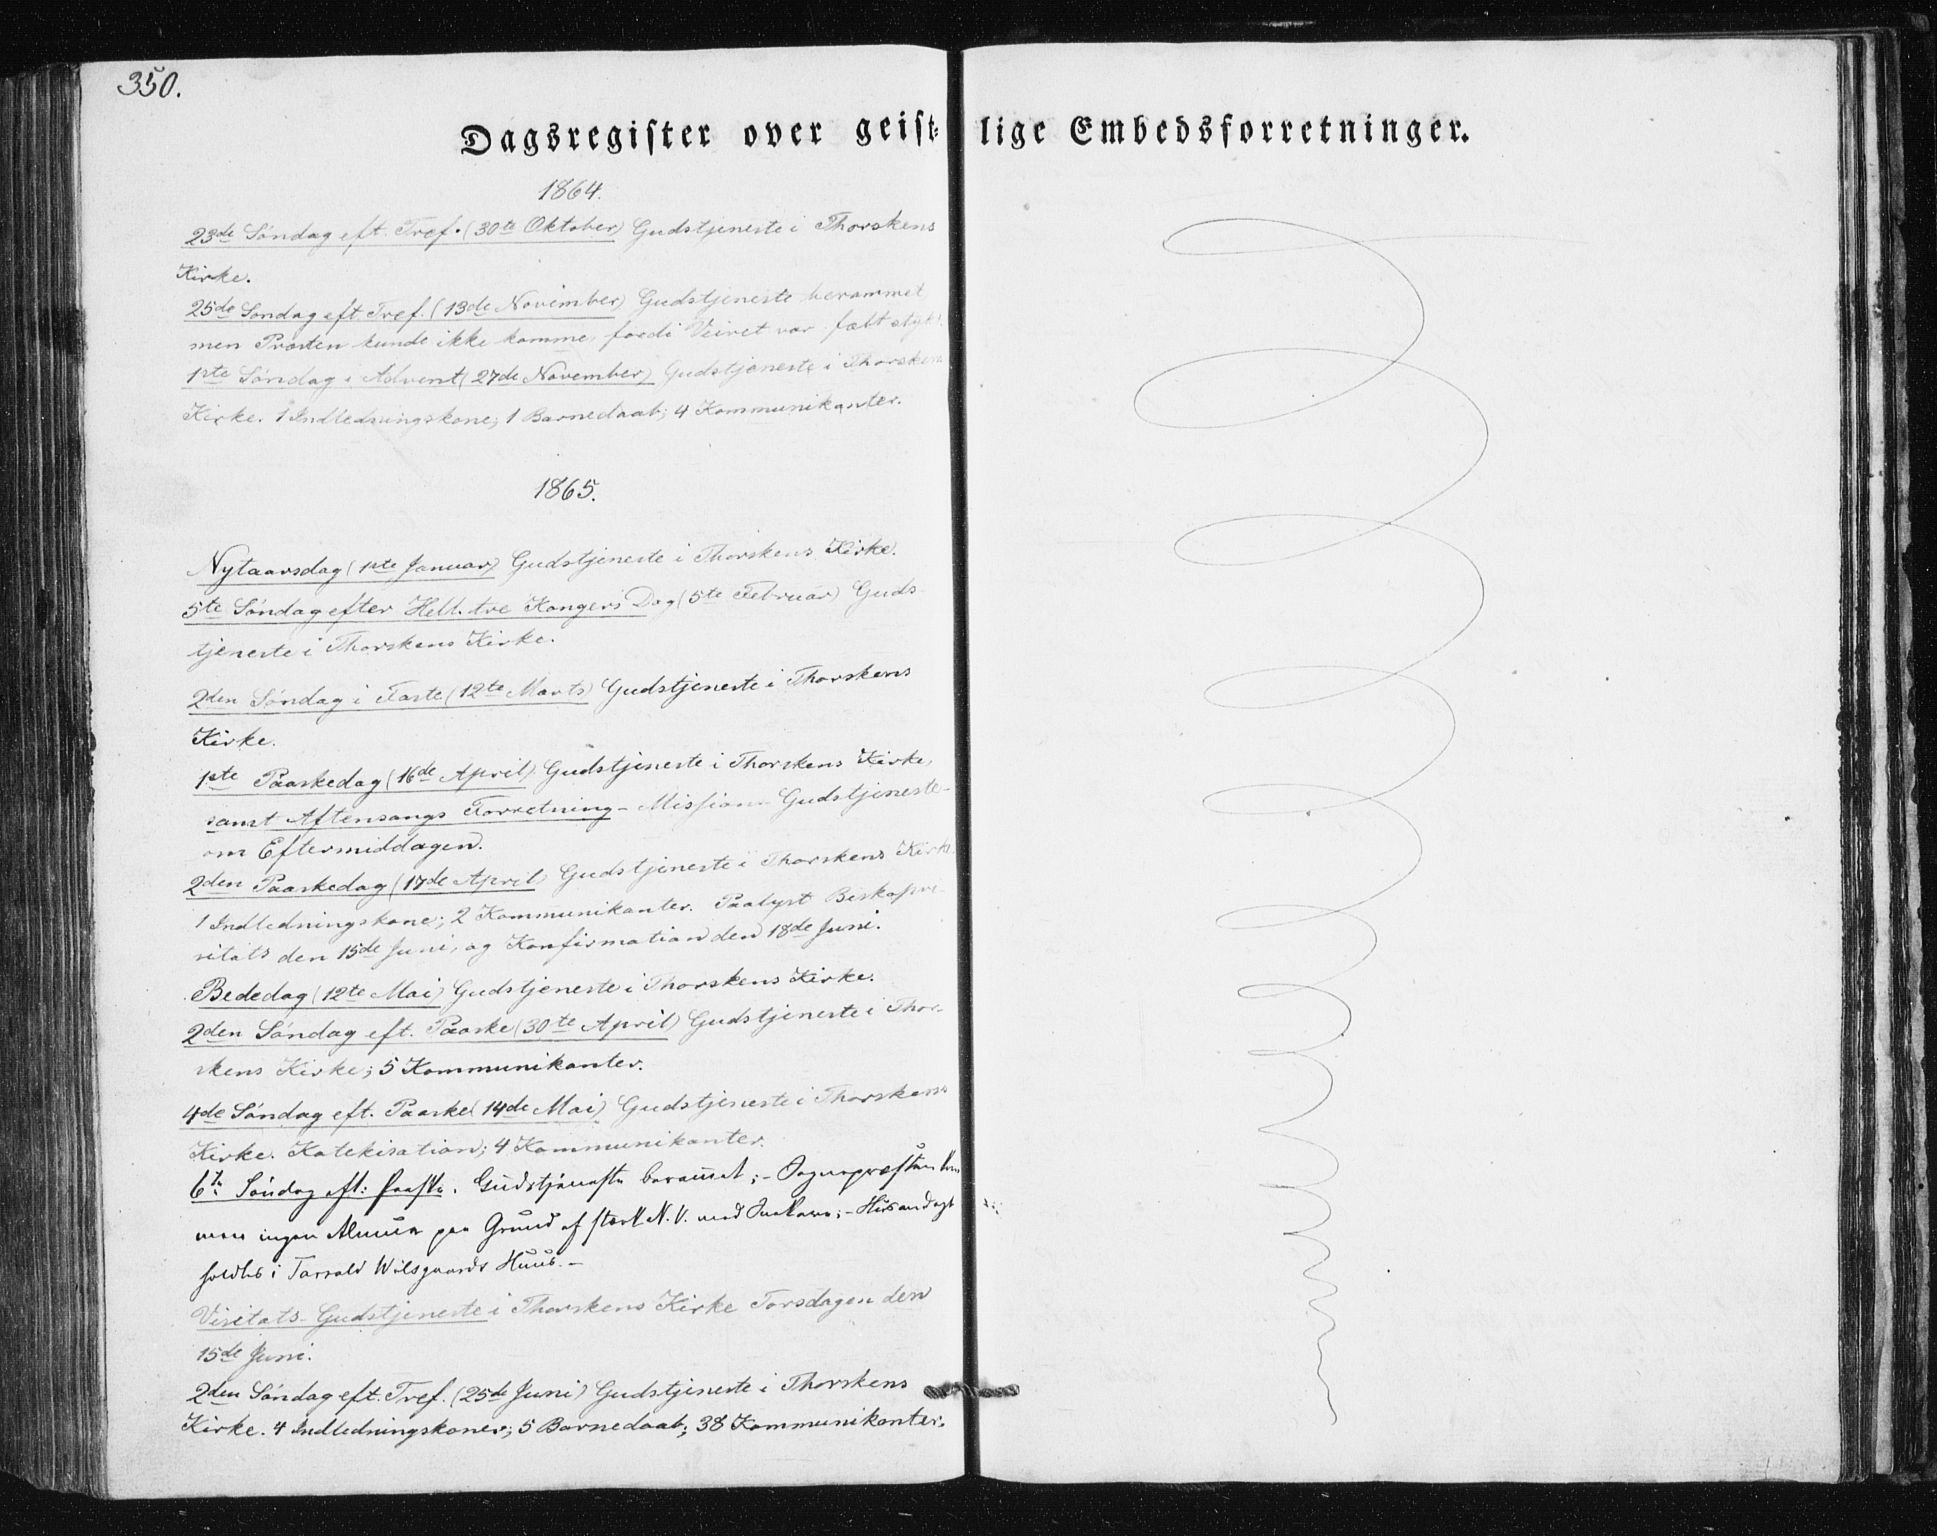 350.
Dagsregister over geist⸗lige Embedsforretninger.
1864.
23de Søndag eft. Tref. (30te Oktober) Gudstjeneste i Thorskens
Kirke.
25de Søndag eft. Tref. (13de November) Gudstjeneste berammet,
men Præsten kunde ikke komme, fordi Veiret var fælt stygt.
1ste Søndag i Advent (27de November) Gudstjeneste i Thorskens
Kirke. 1 Indledningskone; 1 Barnedaab; 4 Kommunikanter.
1865.
Nytaarsdag (1ste Januar) Gudstjeneste i Thorskens Kirke.
5te Søndag efter Hell. tre Kongers Dag (5te Februar) Guds-
tjeneste i Thorskens Kirke.
2den Søndag i Faste (12te Marts) Gudstjeneste i Thorskens
Kirke.
1ste Paaskedag (16de April) Gudstjeneste i Thorskens Kirke,
samt Aftensangs Forretning - Missions-Gudstjeneste -
om Eftermiddagen.
2den Paaskedag (17de April) Gudstjeneste i Thorskens Kirke
1 Indledningskone; 2 Kommunikanter. Paalyst Bispevi-
sitats den 15de Juni, og Konfirmation den 18de Juni.
Bededag (12te Mai) Gudstjeneste i Thorskens Kirke.
2den Søndag eft. Paaske (30te April) Gudstjeneste i Thor-
skens Kirke; 5 Kommunikanter.
4de Søndag eft. Paaske (14de Mai) Gudstjeneste i Thorskens
Kirke. Katekisation; 4 Kommunikanter.
6te Søndag eft: Paaske. Gudstjeneste berammet; - Sognepræsten kom
men ingen Almue paa Grund af stærk N.V. med Snekave; - Husandagt
holdtes i Tarrald Wilsgaards Huus. -
Visitats-Gudstjeneste i Thorskens Kirke Torsdagen den
15de Juni.
2den Søndag eft. Tref. (25de Juni) Gudstjeneste i Thorskens
Kirke. 4 Indledningskoner; 5 Barnedaab; 38 Kommunikanter.